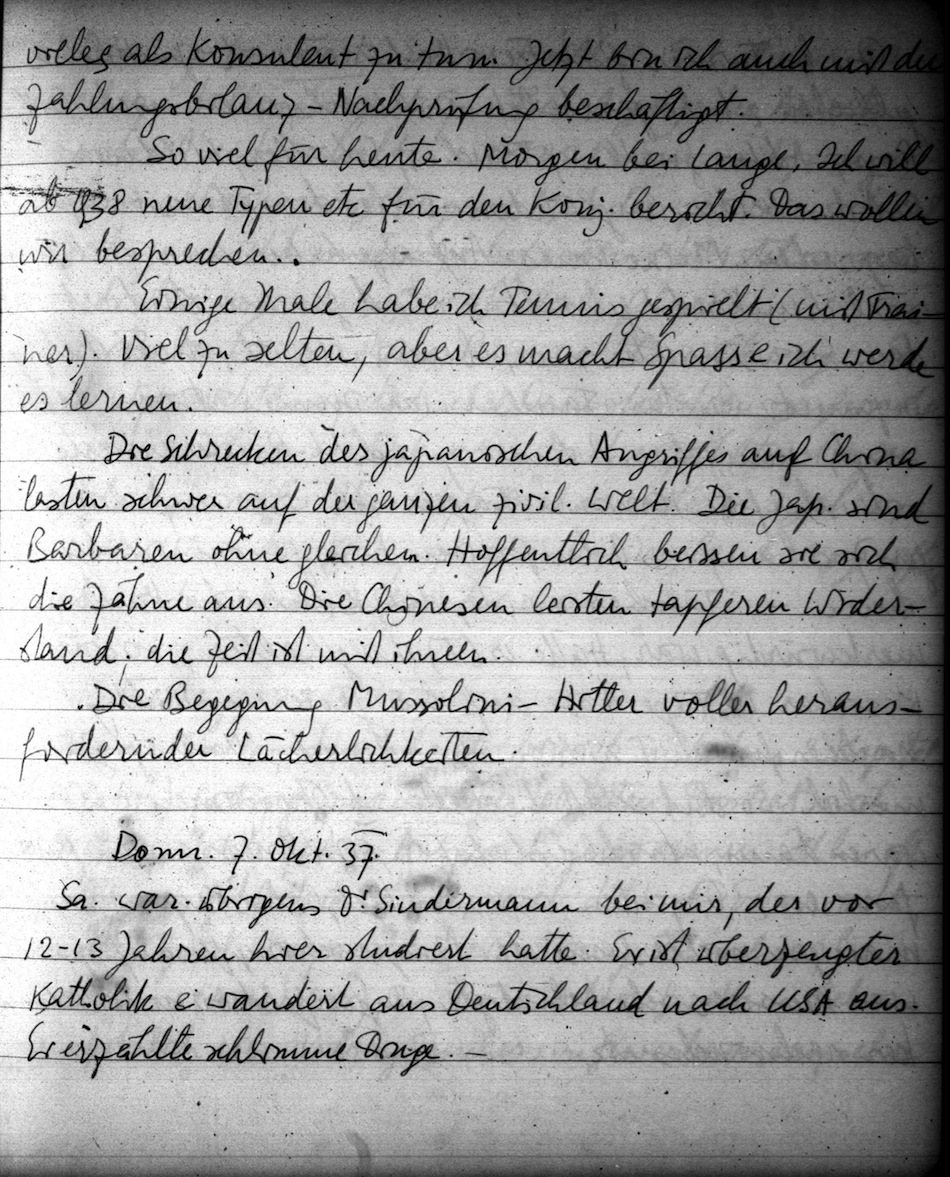 vieles als Konsulent zu tun. Jetzt bin ich auch mit der
Zahlungsbilanz-Nachprüfung beschäftigt.
So viel für heute. Morgen bei Lange, ich will
ab 1938 neue Typen etc für den Konj. bericht. Das wollen
wir besprechen..
Einige Male habe ich Tennis gespielt (mit Trai-
ner). Viel zu selten, aber es macht Spass & ich werde
es lernen.
Die Schrecken des japanischen Angriffes auf China
lasten schwer auf der ganzen zivil. Welt. Die Jap. sind
Barbaren ohne gleichen. Hoffentlich beissen sie sich
die Zähne aus. Die Chinesen leisten tapferen Wider-
stand; die Zeit ist mit ihnen.
Die Begegnung Mussolini-Hitler voller heraus-
fordernder Lächerlichkeiten.
Donn. 7. Okt. 37.
Sa. war übrigens Dr. Sindermann bei mir, der vor
12-13 Jahren hier studiert hatte. Er ist überzeugter
Katholik & wandert aus Deutschland nach USA aus.
Er erzählte schlimme Dinge. -